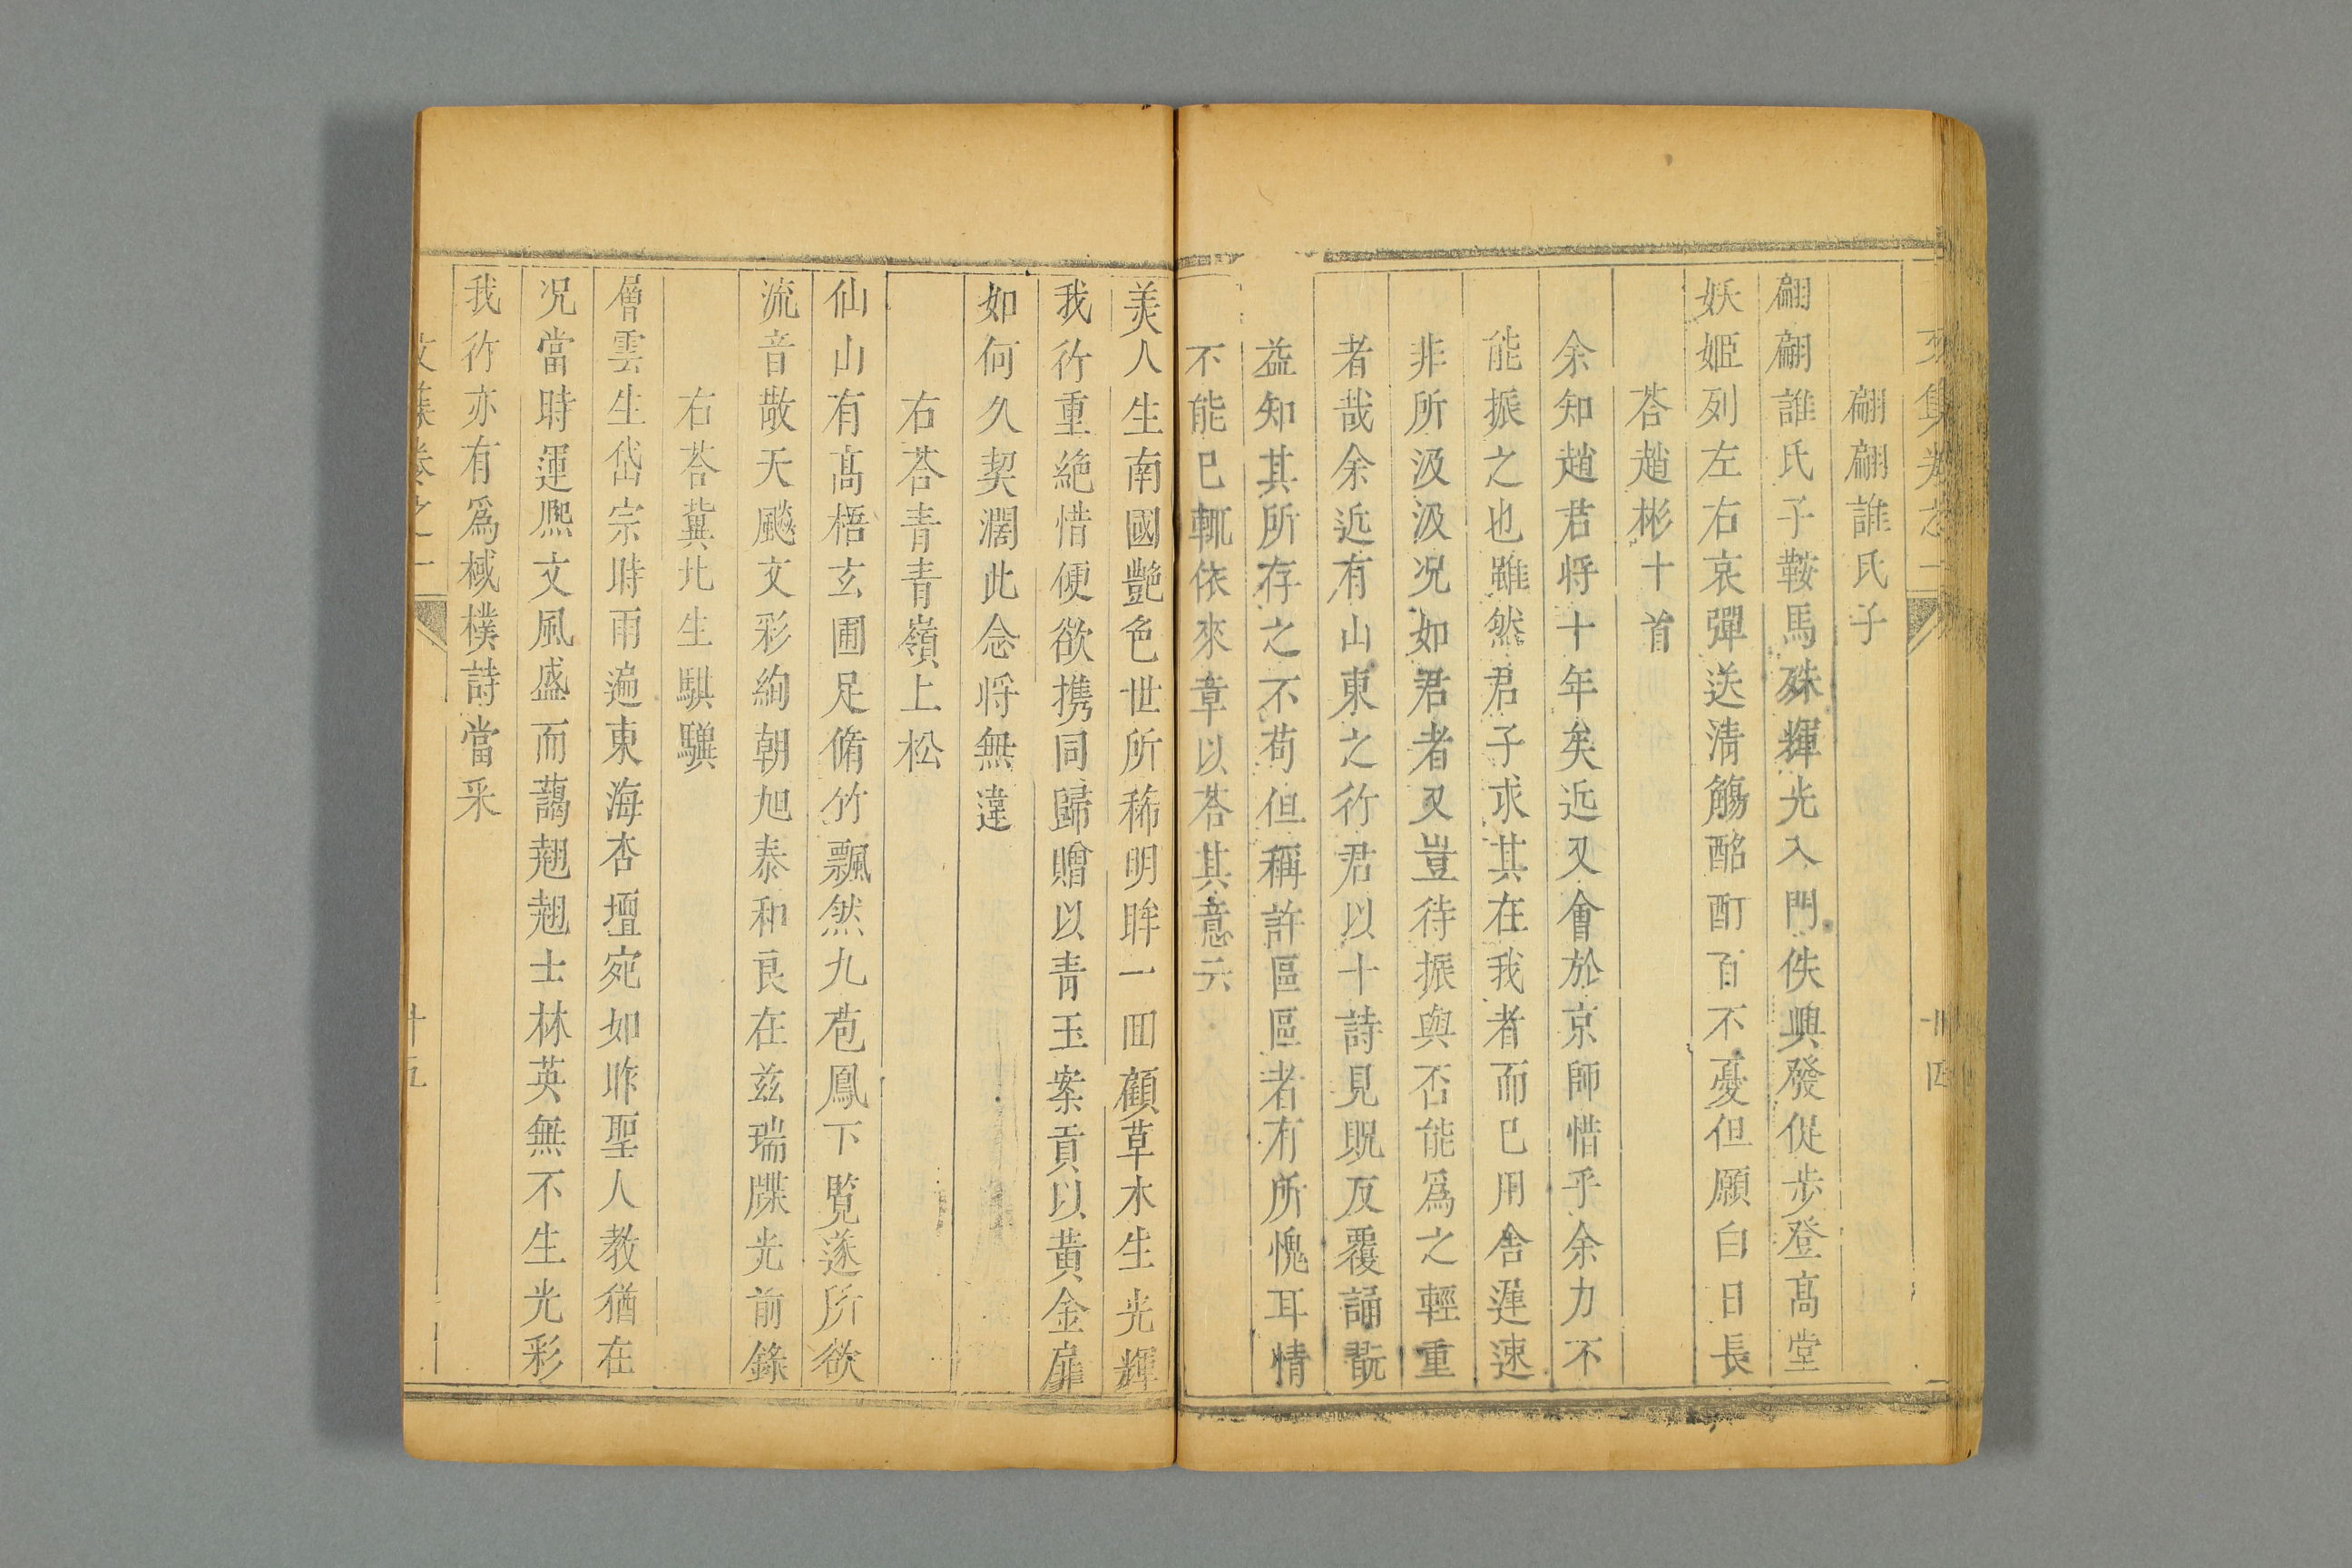 翩翩誰氏子
翩翩誰氏子鞍馬殊輝光入門佚興發促步登高堂
妖姬列左右哀彈送清觴酩酊百不憂但願白日長
荅趙彬十首
余知趙君将十年矣近又會於京師惜乎余力不
能振之也雖然君子求其在我者而已用舍遲速
非所汲汲况如君者又豈待振與否能爲之輕重
者哉余近有山東之行君以十詩見貺反覆誦翫
益知其所存之不苟但稱許區區者有所愧耳情
不能已輒依來章以荅其意云
美人生南國艷色世所稀明眸一囬顧草木生光輝
我行重絶惜便欲携同歸贈以青玉案貢以黄金扉
如何久契濶此念将無違
右荅青青嶺上松
仙山有高梧玄圃足脩竹飄然九苞鳳下覧遂所欲
流音散天飈文彩絢朝旭泰和良在兹瑞牒光前錄
右荅冀北生騏驥
層雲生岱宗時雨遍東海杏壇宛如昨聖人教猶在
况當時運熈文風盛而藹翹翹士林英無不生光彩
我行亦有爲棫樸詩當采
文集卷之一
十五